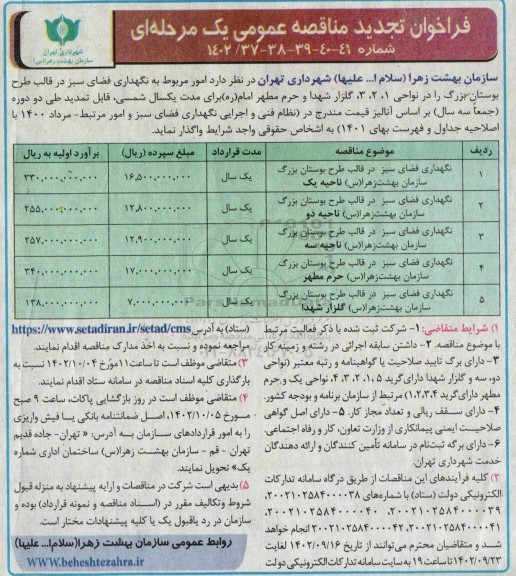 فراخوان تجدید مناقصه عمومی یک مرحله‌ای
شماره ۴۱-۴۰-۳۹-۳۸-۳۷/۱۴۰۲
شهرداری تهران
سازمان بهشت زهرا(س)
سازمان بهشت زهرا (سلام ا... علیها) شهرداری تهران در نظر دارد امور مربوط به نگهداری فضای سبز در قالب طرح
بوستان بزرگ را در نواحی ۱، ۲، ۳، گلزار شهدا و حرم مطهر امام(ره)برای مدت یکسال شمسی، قابل تمدید طی دو دوره
(جمعاً سه سال) بر اساس آنالیز قیمت مندرج در (نظام فنی و اجرایی نگهداری فضای سبز و امور مرتبط- مرداد ۱۴۰۰ با
اصلاحیه جداول و فهرست بهای ۱۴۰۱) به اشخاص حقوقی واجد شرایط واگذار نماید.
ردیف موضوع مناقصه مدت قرارداد مبلغ سپرده (ریال) برآورد اولیه به ریال
۱ نگهداری فضای سبز در قالب طرح بوستان بزرگ سازمان بهشت‌زهرا(س) ناحیه یک یک سال ۱۶,۵۰۰,۰۰۰,۰۰۰ ۳۳۰,۰۰۰,۰۰۰,۰۰۰
۲ نگهداری فضای سبز در قالب طرح بوستان بزرگ سازمان بهشت‌زهرا(س) ناحیه دو یک سال ۱۲,۸۰۰,۰۰۰,۰۰۰ ۲۵۵,۰۰۰,۰۰۰,۰۰۰
۳ نگهداری فضای سبز در قالب طرح بوستان بزرگ سازمان بهشت‌زهرا(س) ناحیه سه یک سال ۱۲,۹۰۰,۰۰۰,۰۰۰ ۲۵۷,۰۰۰,۰۰۰,۰۰۰
۴ نگهداری فضای سبز در قالب طرح بوستان بزرگ سازمان بهشت‌زهرا(س) حرم مطهر یک سال ۱۷,۰۰۰,۰۰۰,۰۰۰ ۳۴۰,۰۰۰,۰۰۰,۰۰۰
۵ نگهداری فضای سبز در قالب طرح بوستان بزرگ سازمان بهشت‌زهرا(س) گلزار شهدا یک سال ۷,۰۰۰,۰۰۰,۰۰۰ ۱۳۸,۰۰۰,۰۰۰,۰۰۰
۱) شرایط متقاضی: ۱- شرکت ثبت شده با ذکر فعالیت مرتبط
با موضوع مناقصه. ۲- داشتن سابقه اجرائی در رشته و زمینه کار
۳- دارای برگ تایید صلاحیت یا گواهینامه و رتبه معتبر (نواحی
دو، سه و گلزار شهدا دارای‌گرید ۱،۵، ۲، ۳، ۴، نواحی یک و حرم
مطهر دارای‌گرید ۱،۲،۳،۴) مرتبط از سازمان برنامه و بودجه کشور.
۴- دارای سقف ریالی و تعداد مجاز کار. ۵- دارای اصل گواهی
صلاحیت ایمنی پیمانکاری از وزارت تعاون، کار و رفاه اجتماعی.
۶- دارای برگه ثبت‌نام در سامانه تأمین کنندگان و ارائه دهندگان
خدمت شهرداری تهران.
۲) کلیه فرآیندهای این مناقصات از طریق درگاه سامانه تدارکات
الکترونیکی دولت (ستاد) با شماره‌های ۲۰۰۲۱۰۲۵۸۴۰۰۰۰۳۸،
۲۰۰۲۱۰۲۵۸۴۰۰۰۰۳۹، ۲۰۰۲۱۰۲۵۸۴۰۰۰۰۴۰،
۲۰۰۲۱۰۲۵۸۴۰۰۰۰۴۱، ۲۰۰۲۱۰۲۵۸۴۰۰۰۰۴۲ انجام خواهد
شد و متقاضیان محترم می‌توانند از تاریخ ۱۴۰۲/۰۹/۱۶ لغایت
۱۴۰۲/۰۹/۲۳ تا ساعت ۱۹ به سایت سامانه تدارکات الکترونیکی دولت
(ستاد) به آدرس https://www.setadiran.ir/setad/cms
مراجعه نموده و نسبت به اخذ مدارک مناقصه اقدام نمایند.
۳) متقاضی موظف است تا ساعت ۱۱ مورخ ۱۴۰۲/۱۰/۰۴ نسبت به
بارگذاری کلیه اسناد مناقصه در سامانه ستاد اقدام نمایند.
۴) متقاضی موظف است در روز بازگشایی پاکات، ساعت ۹ صبح
مورخ ۱۴۰۲/۱۰/۰۵، اصل ضمانتنامه بانکی یا فیش واریزی
را به امور قراردادهای سازمان به آدرس: « تهران- جاده قدیم
تهران - قم - سازمان بهشت زهرا(س) ساختمان اداری شماره
یک» تحویل نمایند.
۵) بدیهی است شرکت در مناقصات و ارایه پیشنهاد به منزله قبول
شروط وتکالیف مقرر در (اسناد مناقصه و نمونه قرارداد) بوده و
سازمان در رد یاقبول یک یا کلیه پیشنهادات مختار است.
روابط عمومی سازمان بهشت زهرا(سلام‌ا... علیها)
www.beheshtezahra.ir